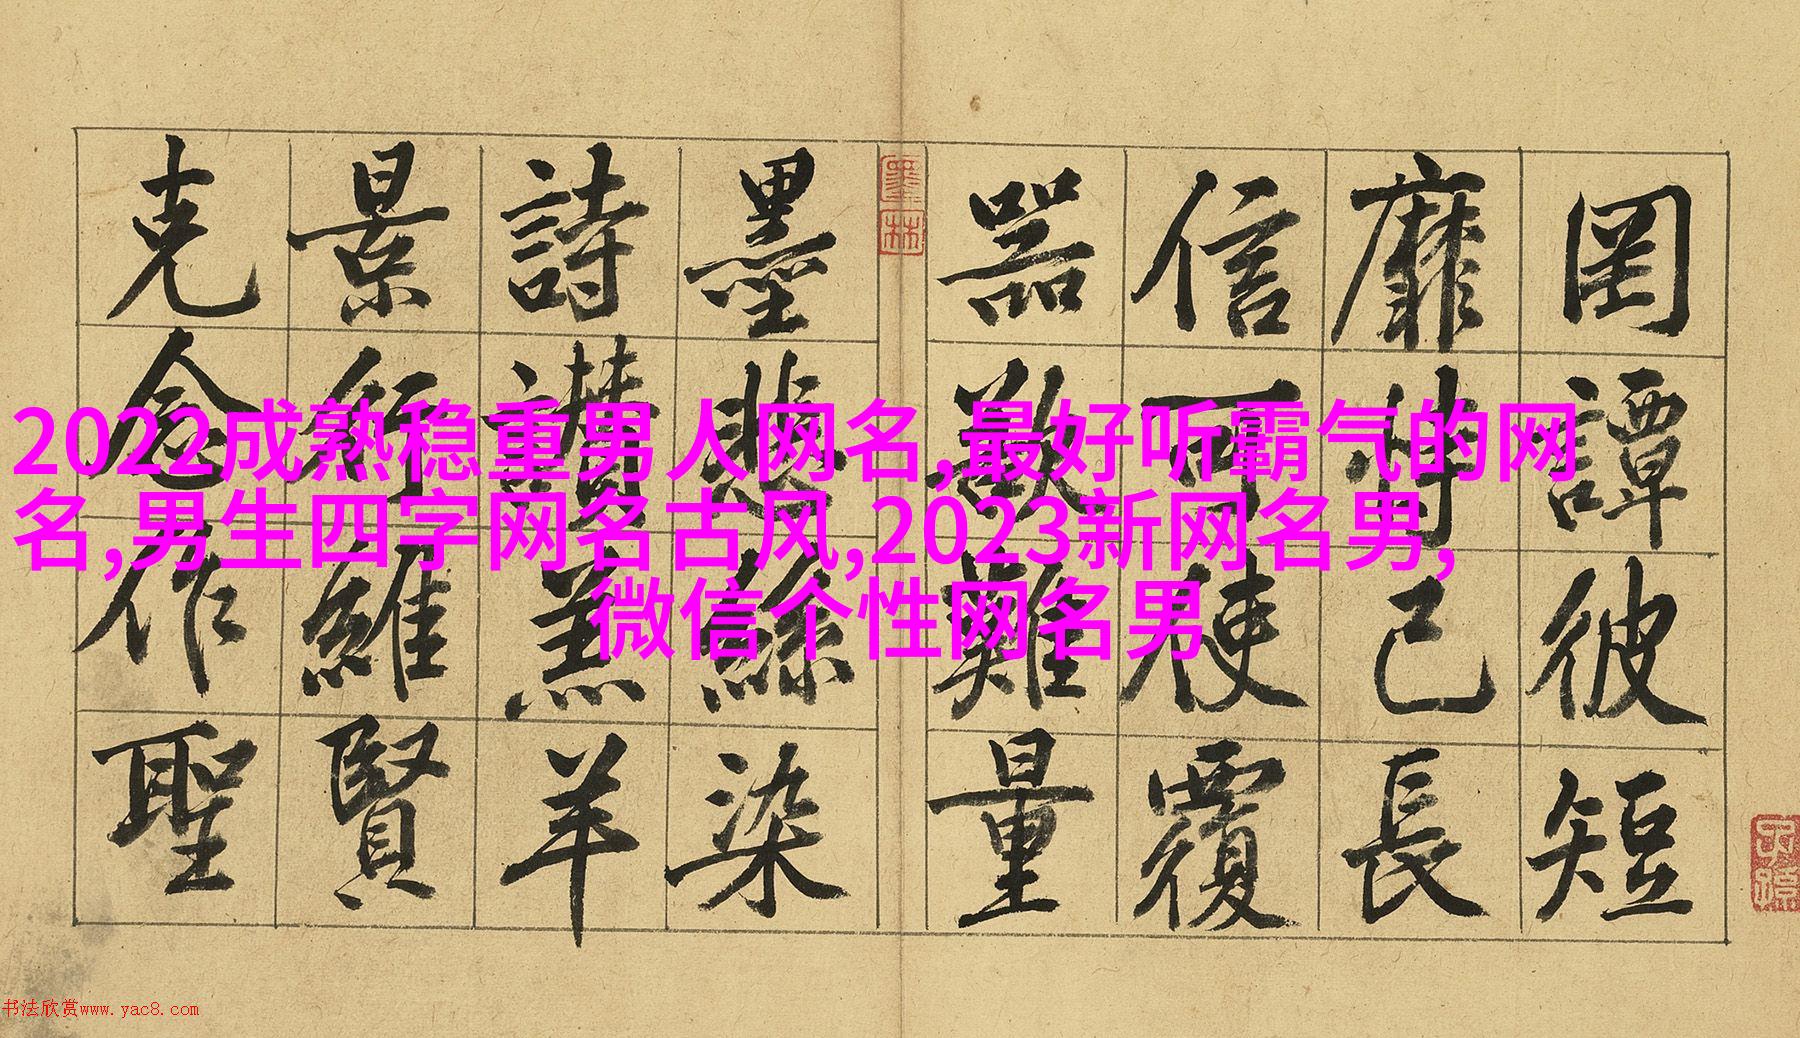 罔譚彼短
靡恃己長
信可使覆
器欲難量
墨悲絲染
詩讚羔羊
景行維賢
克念作聖
墨林
子孫
2022成熟稳重男人网名,最好听霸气的网
名,男生四字网名古风,2023新网名男,
微信个性网名男
书法欣赏www.yac8.com